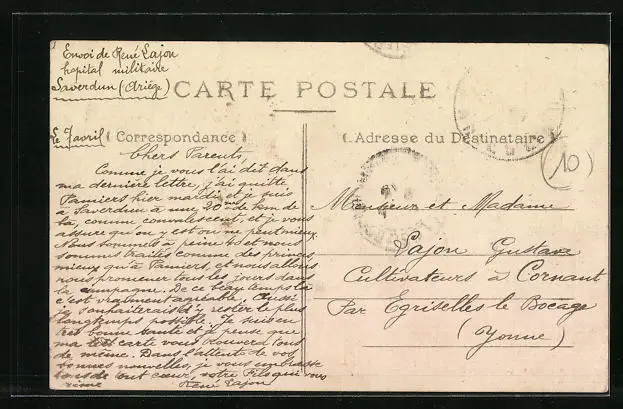 Envoi de René Lajon
hopital militaire
Saverdun (Ariège)
CARTE POSTALE
Le 7 avril
( Correspondance )
( Adresse du Destinataire )
10
Chers Parents,
Comme je vous l'ai dit dans
ma dernière lettre, j'ai quitté
Pamiers hier mardi et je suis
à Saverdun à une 20ne de km de
là, comme convalescent, et je vous
assure qu'on y est on ne peut mieux.
Nous sommes à peine et nous
sommes traités comme des princes,
mieux qu'à Pamiers, et nous allons
nous promener tous les jours dans
la campagne. De ce beau temps là
c'est vraiment agréable. Aussi
je souhaiterais d'y rester le plus
longtemps possible. Je suis en
très bonne santé et je pense que
ma carte vous trouvera tous
de même. Dans l'attente de vos
bonnes nouvelles, je vous embrasse
tous de tout cœur, votre fils qui vous
aime René Lajon
Monsieur et Madame
Lajon Gustave
Cultivateurs à Cornant
Par Egriselles le Bocage
(Yonne)